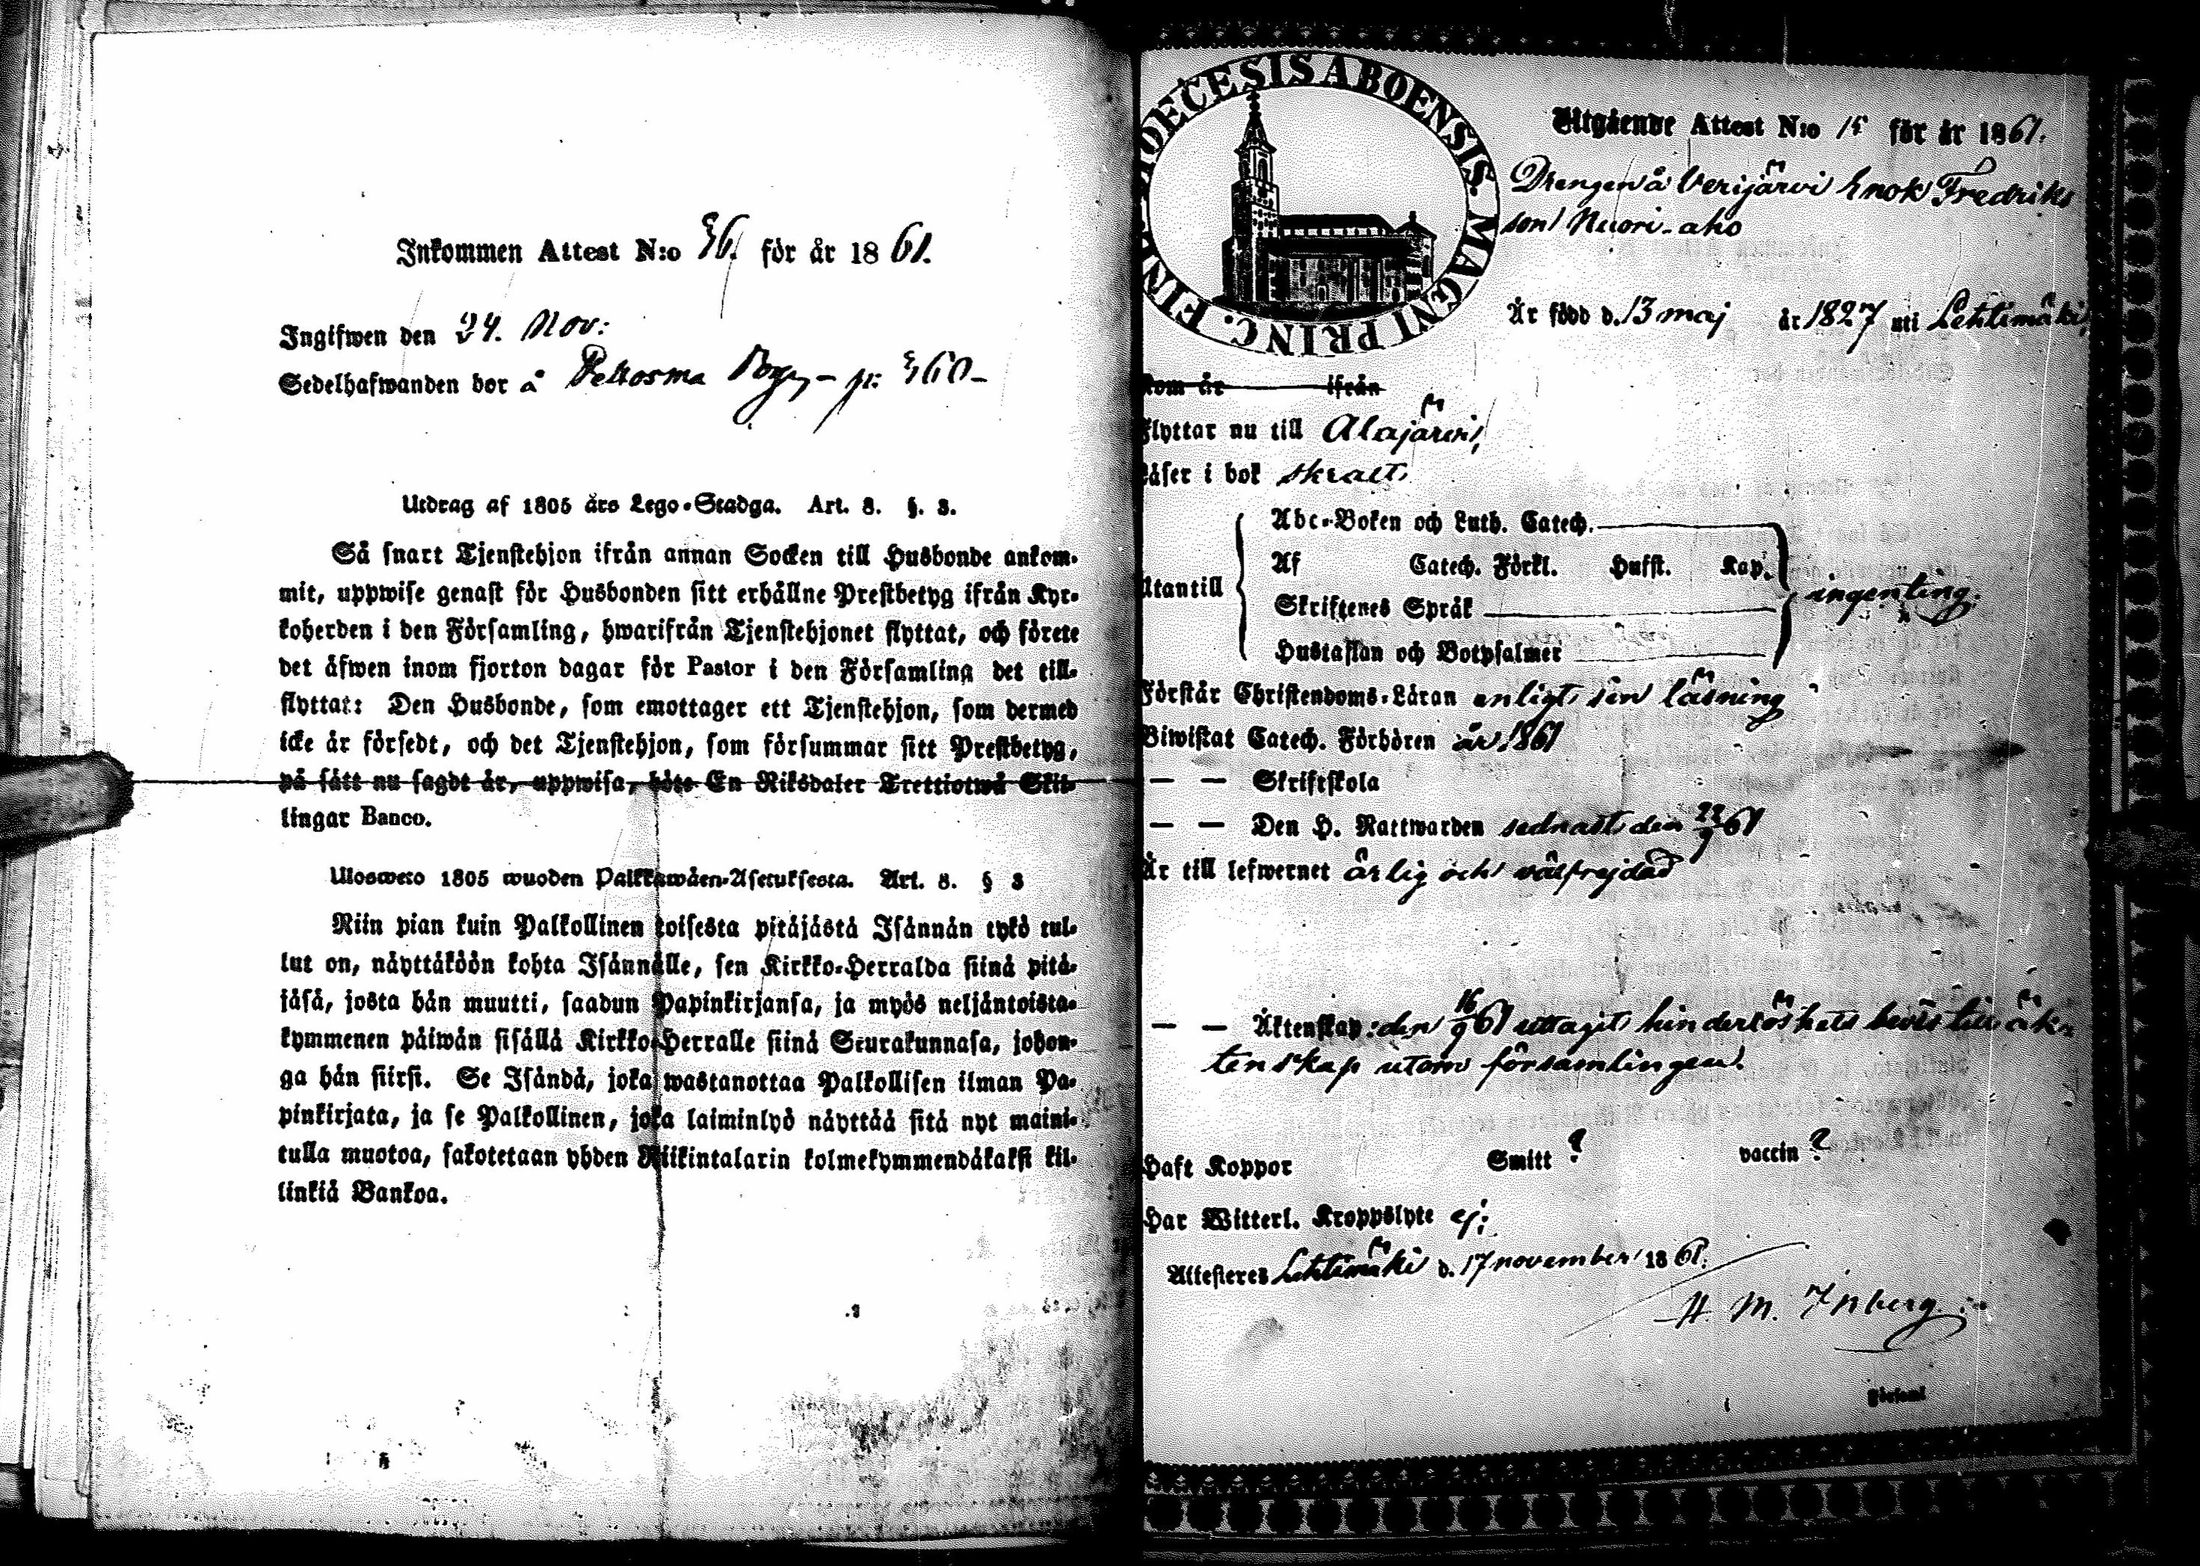 Inkommen Attest N:o 36. för år 1861.
Ingifwen den 24. Nov:
Sedelhafwanden bor å Pekosma p: 360-
Utdrag af 1805 års Lego-Stadga. Art. 8. §. 3.
Så snart Tjenstehjon ifrån annan Socken till Husbonde ankom-
mit, uppwise genast för Husbonden sitt erhållne Prestbetyg ifrån Kyr-
koherden i den Församling, hwarifrån Tjenstehjonet flyttat, och förete
det äfwen inom fjorton dagar för Pastor i den Församling det till-
flyttat: Den Husbonde, som emottager ett Tjenstehjon, som dermed
icke är försedt, och det Tjenstehjon, som försummar sitt Prestbetyg,
på sätt nu sagdt är, uppwisa, böte En Riksdaler Trettiotwå Skil-
lingar Banco.
Ulosweto 1805 wuoden Palkkawäen-Asetuksesta. Art. 8. § 3
Niin pian kuin Palkollinen toisesta pitäjästä Isännän tykö tul-
lut on, näyttäköön kohta Isännälle, sen Kirkko-Herralda siinä pitä-
jäsä, josta hän muutti, saadun Papinkirjansa, ja myös neljäntoista-
kymmenen päiwän sisällä Kirkko-Herralle siinä Seurakunnasa, johon-
ga hän siirsi. Se Isändä, joka wastanottaa Palkollisen ilman Pa-
pinkirjata, ja se Palkollinen, joka laiminlyö näyttää sitä nyt maini-
tulla muotoa, sakotetaan yhden Riikintalarin kolmekymmendäkaksi kil-
linkiä Bankoa.
DIOECESIS ABOENSIS. MAGNI PRINC. FINL.
Utgående Attest N:o 15 för år 1861.
Drengen å Verijärvi Enok Fredriks
son Nuori-aho
Är född d. 13 maj år 1827 uti Lehtimäki,
kom år ifrån
Flyttar nu till Alajärvi,
Läser i bok skralt
Abc-Boken och Luth. Catech.
Af Catech. Förkl. Hufst. Kap.
Utantill ingenting.
Skriftenes Språk
Hustaflan och Botpsalmer
Förstår Christendoms-Läran enligt sin läsning
Biwistat Catech. Förhören år 1861
— — Skriftskola
— — Den H. Nattwarden sednast den 22/9 61
Är till lefwernet ärlig och välfrejdad
— — Äktenskap: den 16/9 61 uttagit hinderlöshets bevis till äk-
tenskap utom församlingen.
Haft Koppor Smitt ? vaccin ?
Har Witterl. Kroppslyte ej:
Attesteres Lehtimäki d. 17 november 1861.